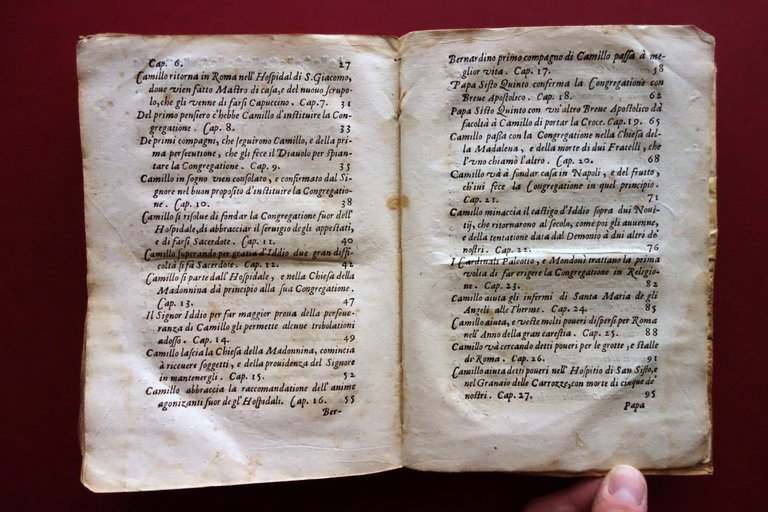 Cap. 6. 27
Camillo ritorna in Roma nell'Hospidal di S. Giacomo,
doue vien fatto Mastro di casa, e del nuouo scrupo-
lo, che gli venne di farsi Capuccino. Cap. 7. 31
Del primo pensiero c'hebbe Camillo d'instituire la Con-
gregatione. Cap. 8. 33
De primi compagni, che seguirono Camillo, e della pri-
ma persecutione, che gli fece il Diauolo per spian-
tare la Congregatione. Cap. 9. 35
Camillo in sogno vien consolato, e confirmato dal Si-
gnore nel buon proposito d'instituire la Congregatio-
ne. Cap. 10. 38
Camillo si risolue di fondar la Congregatione fuor dell'
Hospidale, di abbracciar il seruigio degli appestati,
e di farsi Sacerdote. Cap. 11. 40
Camillo superando per gratia d'Iddio due gran diffi-
coltà si fà Sacerdote. Cap. 12. 42
Camillo si parte dall'Hospidale, e nella Chiesa della
Madonnina dà principio alla sua Congregatione.
Cap. 13. 47
Il Signor Iddio per far maggior proua della perseue-
ranza di Camillo gli permette alcune tribolationi
adosso. Cap. 14. 49
Camillo lascia la Chiesa della Madonnina, comincia
à riceuere soggetti, e della prouidenza del Signore
in mantenergli. Cap. 15. 52
Camillo abbraccia la raccomandatione dell'anime
agonizanti fuor degl'Hospidali. Cap. 16. 55
Ber-
Bernardino primo compagno di Camillo passa à me-
glior vita. Cap. 17. 58
Papa Sisto Quinto conferma la Congregatione con
Breue Apostolico. Cap. 18. 62
Papa Sisto Quinto con vn'altro Breue Apostolico dà
facoltà à Camillo di portar la Croce. Cap. 19. 65
Camillo passa con la Congregatione nella Chiesa del-
la Madalena, e della morte di dui Fratelli, che
l'vno chiamò l'altro. Cap. 20. 68
Camillo và à fondar casa in Napoli, e del frutto,
ch'iui fece la Congregatione in quel principio.
Cap. 21. 71
Camillo minaccia il castigo d'Iddio sopra dui Noui-
tij, che ritornarono al secolo, come poi gli auuenne,
e della tentatione data dal Demonio à dui altri de'
nostri. Cap. 22. 76
I Cardinali Paleotto, e Mondouì trattano la prima
volta di far erigere la Congregatione in Religio-
ne. Cap. 23. 82
Camillo aiuta gli infermi di Santa Maria de gli
Angeli alle Therme. Cap. 24. 85
Camillo aiuta, e veste molti poueri dispersi per Roma
nell'Anno della gran carestia. Cap. 25. 88
Camillo và cercando detti poueri per le grotte, e stalle
di Roma. Cap. 26. 91
Camillo aiuta detti poueri nell'Hospitio di San Sisto, e
nel Granaio delle Carrozze, con morte di cinque de'
nostri. Cap. 27. 95
Papa